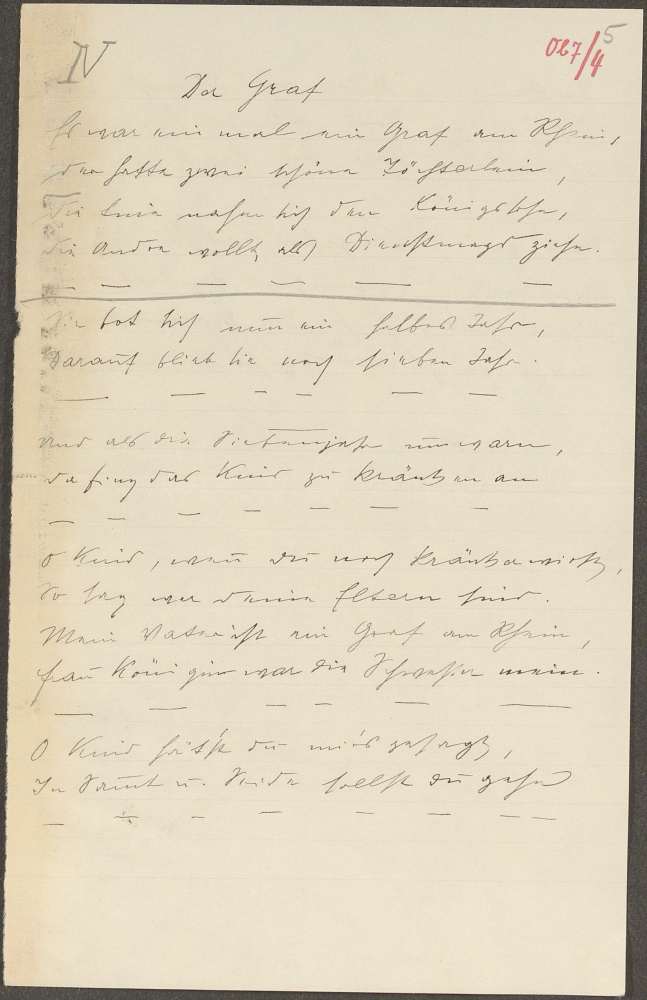 IV
OL7/4
5
Der Graf
Es war ein mal ein Graf am Rhein,
der hatte zwei schöne Töchterlein,
die Eine nahm sich den Königssohn,
die Andre wollt, als Dienstmagd ziehn.
— — — — — —
Sie bot sich nun ein halbes Jahr,
Darauf blieb sie noch sieben Jahr.
— — — — — —
Und als die Siebenjahr um waren,
da fing das Kind zu kränkeln an
— — — — — — —
O Kind, wenn du noch kränker wirst,
So sag wer deine Eltern sind.
Mein Vater ist ein Graf am Rhein,
Frau Königin war die Schwester mein.
— — — — —
O Kind hätt'st du mir's gesagt,
In Samt u. Seide sollst du gehn
— — — — — — — —